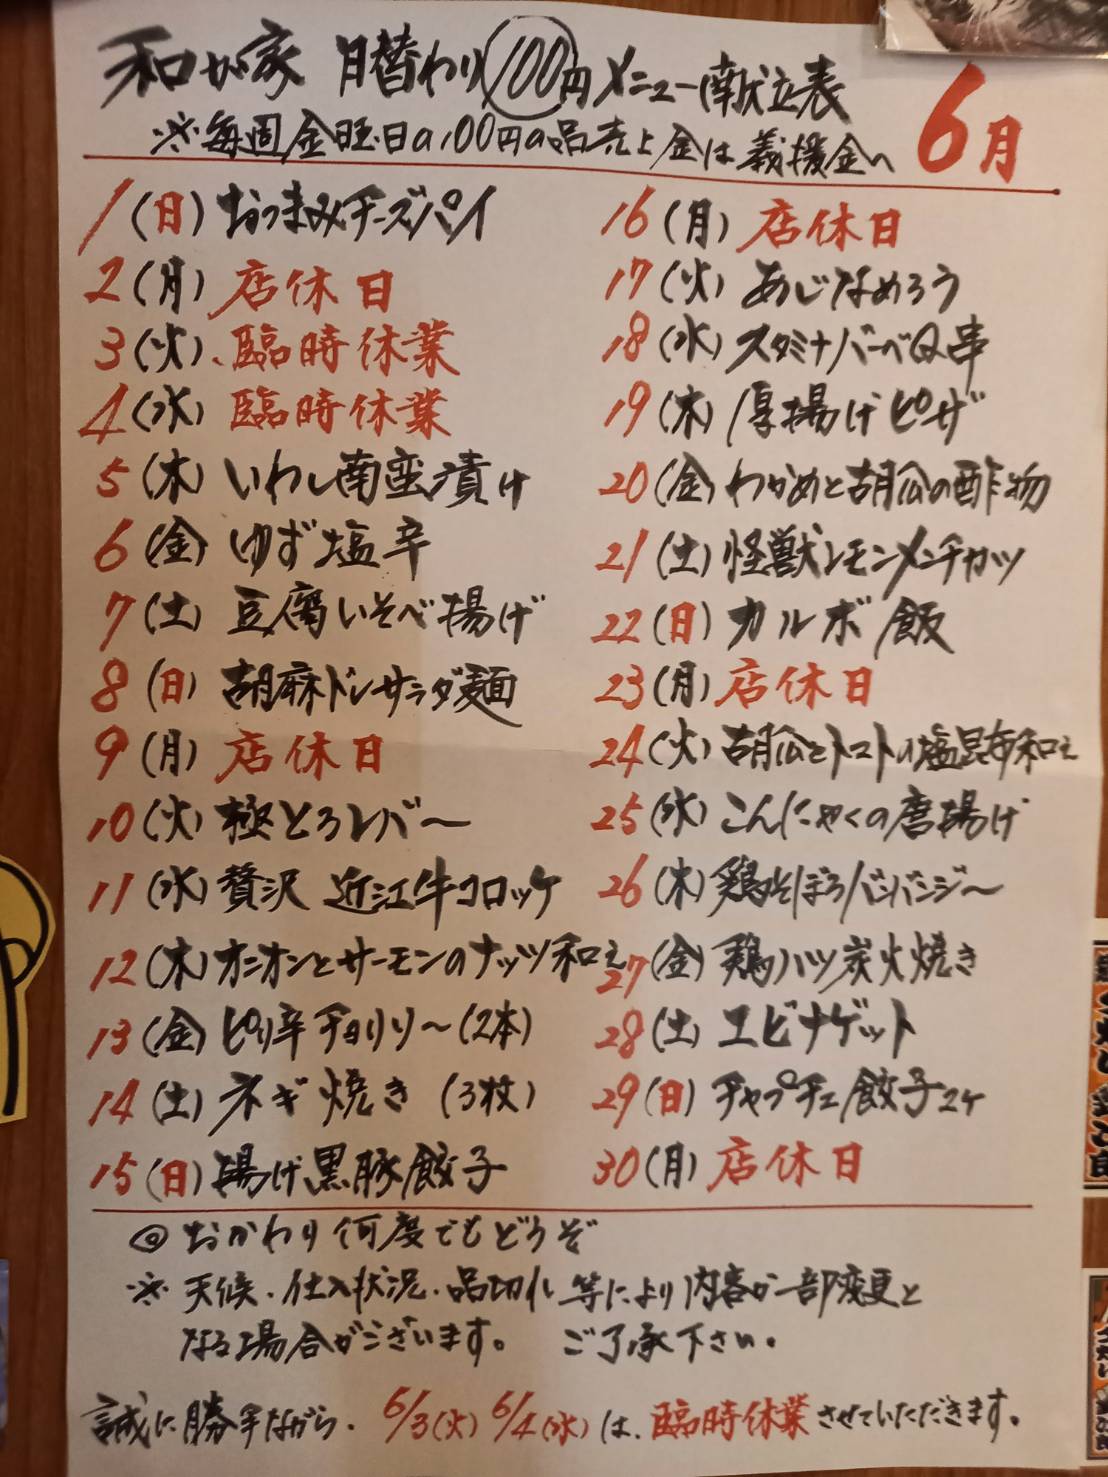 和が家 日替わり100円メニュー献立表
6月
※毎週金曜日の100円の品売上金は義援金へ
1(日)おつまみチーズパイ
2(月)店休日
3(火)、臨時休業
4(水)臨時休業
5(木)いわし南蛮漬け
6(金)ゆず塩辛
7(土)豆腐いそべ揚げ
8(日)胡麻ドレサラダ麺
9(月)店休日
10(火)極とろレバ〜
11(水)贅沢 近江牛コロッケ
12(木)オニオンとサーモンのナッツ和え
13(金)ピリ辛チョリソ〜(2本)
14(土)ネギ焼き(3枚)
15(日)揚げ黒豚餃子
16(月)店休日
17(火)あじなめろう
18(水)スタミナバーベQ串
19(木)厚揚げピザ
20(金)わかめと胡瓜の酢物
21(土)怪獣レモンメンチカツ
22(日)カルボ飯
23(月)店休日
24(火)胡瓜とトマトの塩昆布和え
25(水)こんにゃくの唐揚げ
26(木)鶏そぼろバンバンジ〜
27(金)鶏ハツ炭火焼き
28(土)エビナゲット
29(日)チャプチェ餃子2ヶ
30(月)店休日
◎おかわり何度でもどうぞ
※天候・仕入状況・品切れ等により内容が一部変更と
なる場合がございます。 ご了承下さい。
誠に勝手ながら、6/3(火) 6/4(水)は、臨時休業させていただきます。